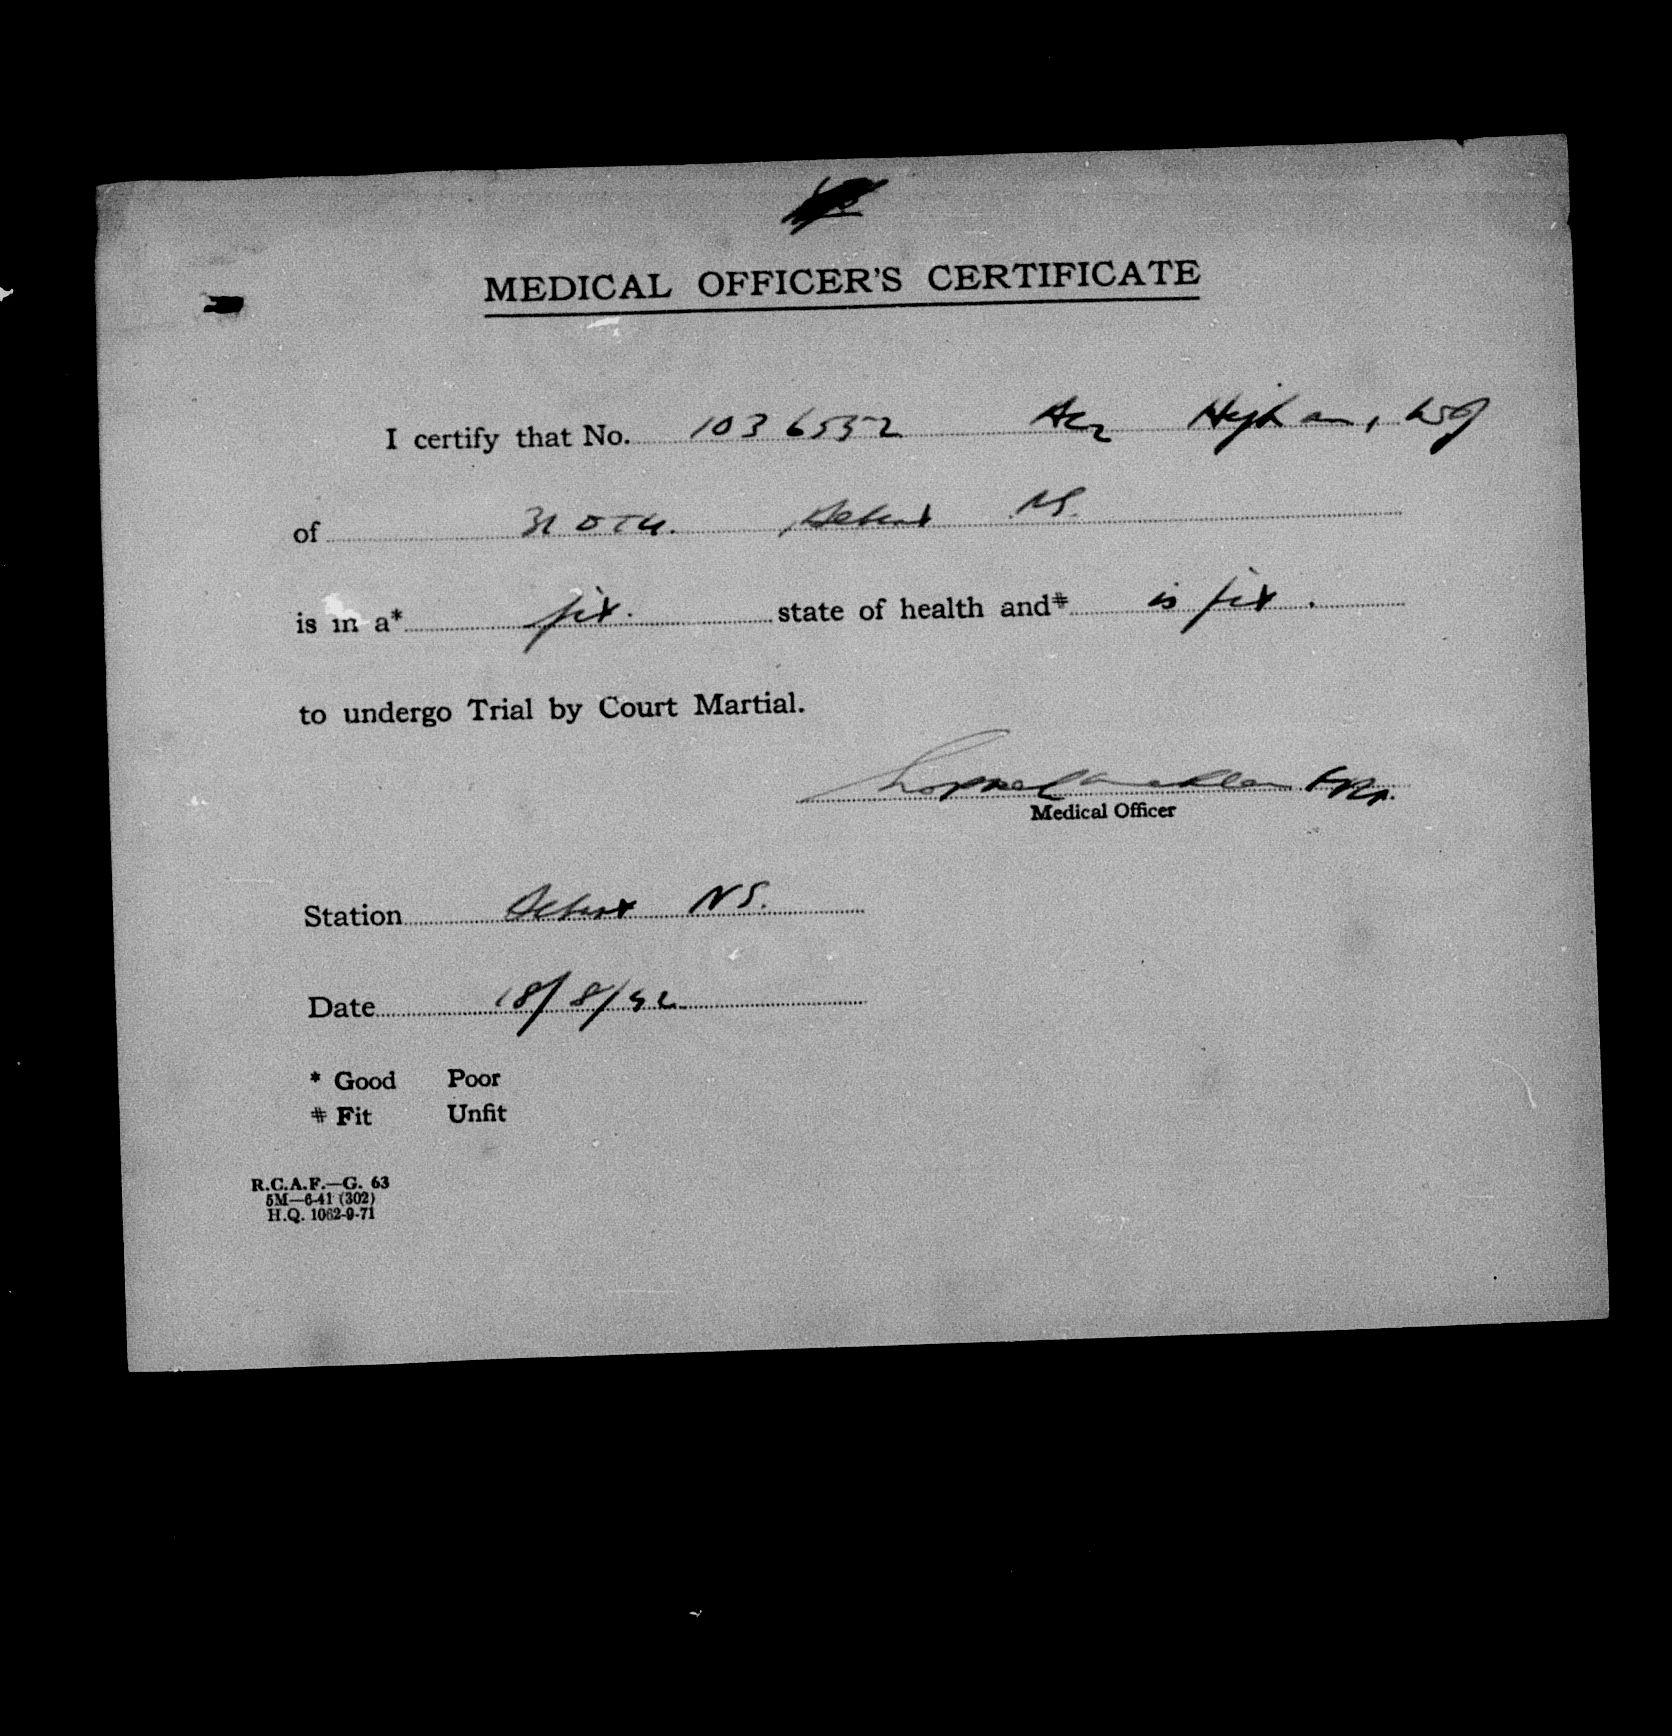 MEDICAL OFFICER'S CERTIFICATE
I certify that No. 1036532 AC2 Higham, WJ
of 31 OTU. Debert NS.
is in a* fit. state of health and# is fit.
to undergo Trial by Court Martial.
Medical Officer
Station Debert NS.
Date 18/8/42
* Good Poor
# Fit Unfit
R.C.A.F.—G. 63
5M—6-41 (302)
H.Q. 1062-9-71